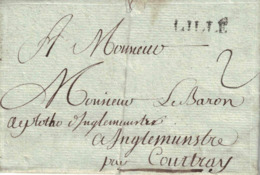 LILLE
A Monsieur
2
Monsieur Le Baron
de Plotho d'Inglemunstre
a Inglemunstre
par Courtray